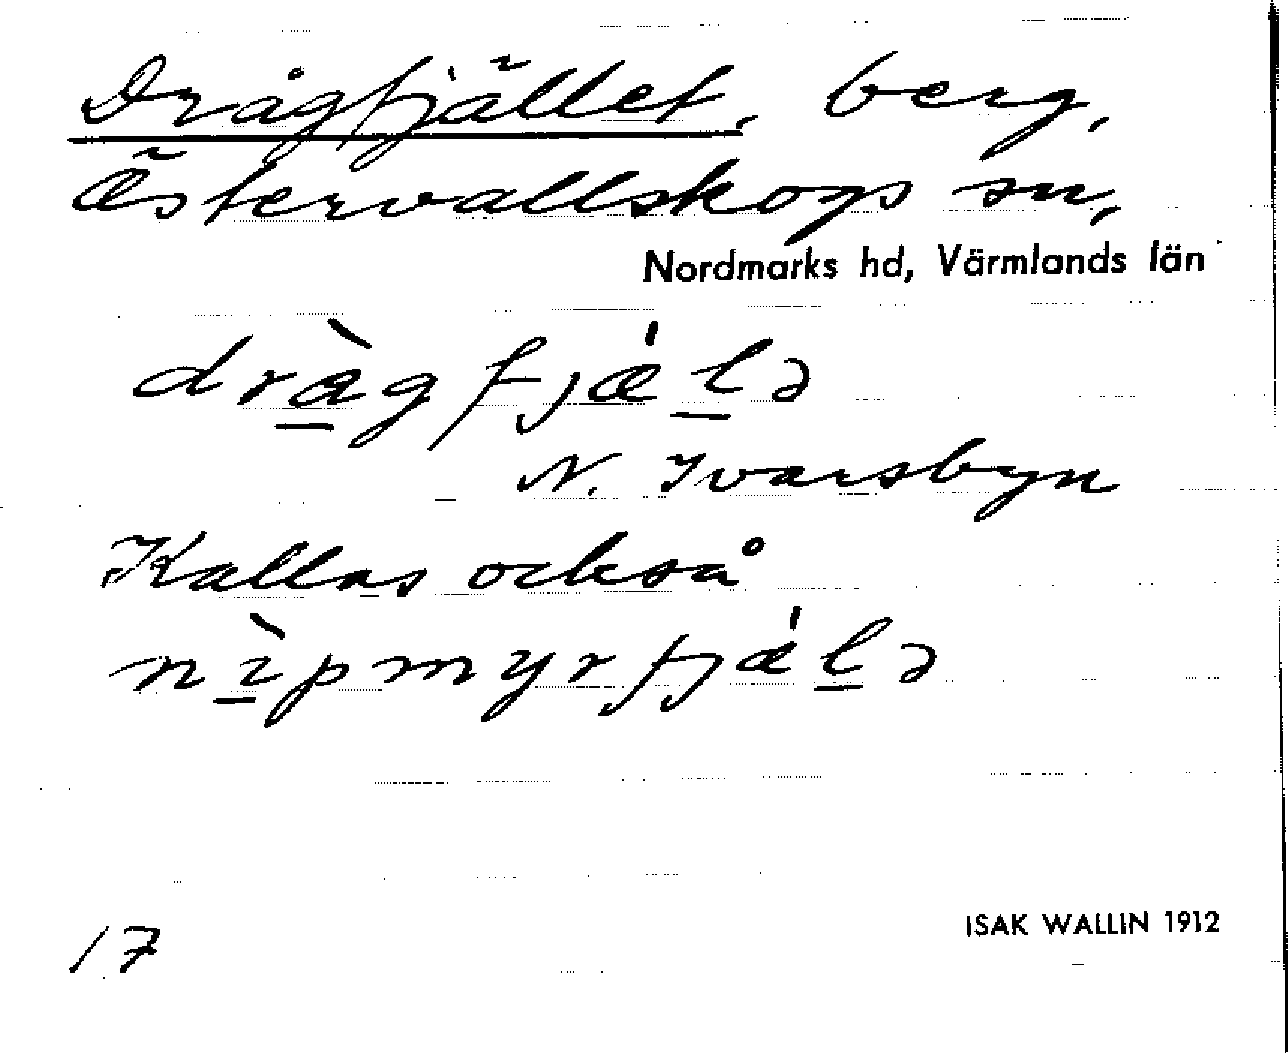 Drågfjället, berg,
Östervallskogs sn,
Nordmarks hd, Värmlands län
drà̱gfjǽḻə
N. Ivarsbyn
Kallas också
nı̱̀pmyrfjǽḻə
17
ISAK WALLIN 1912